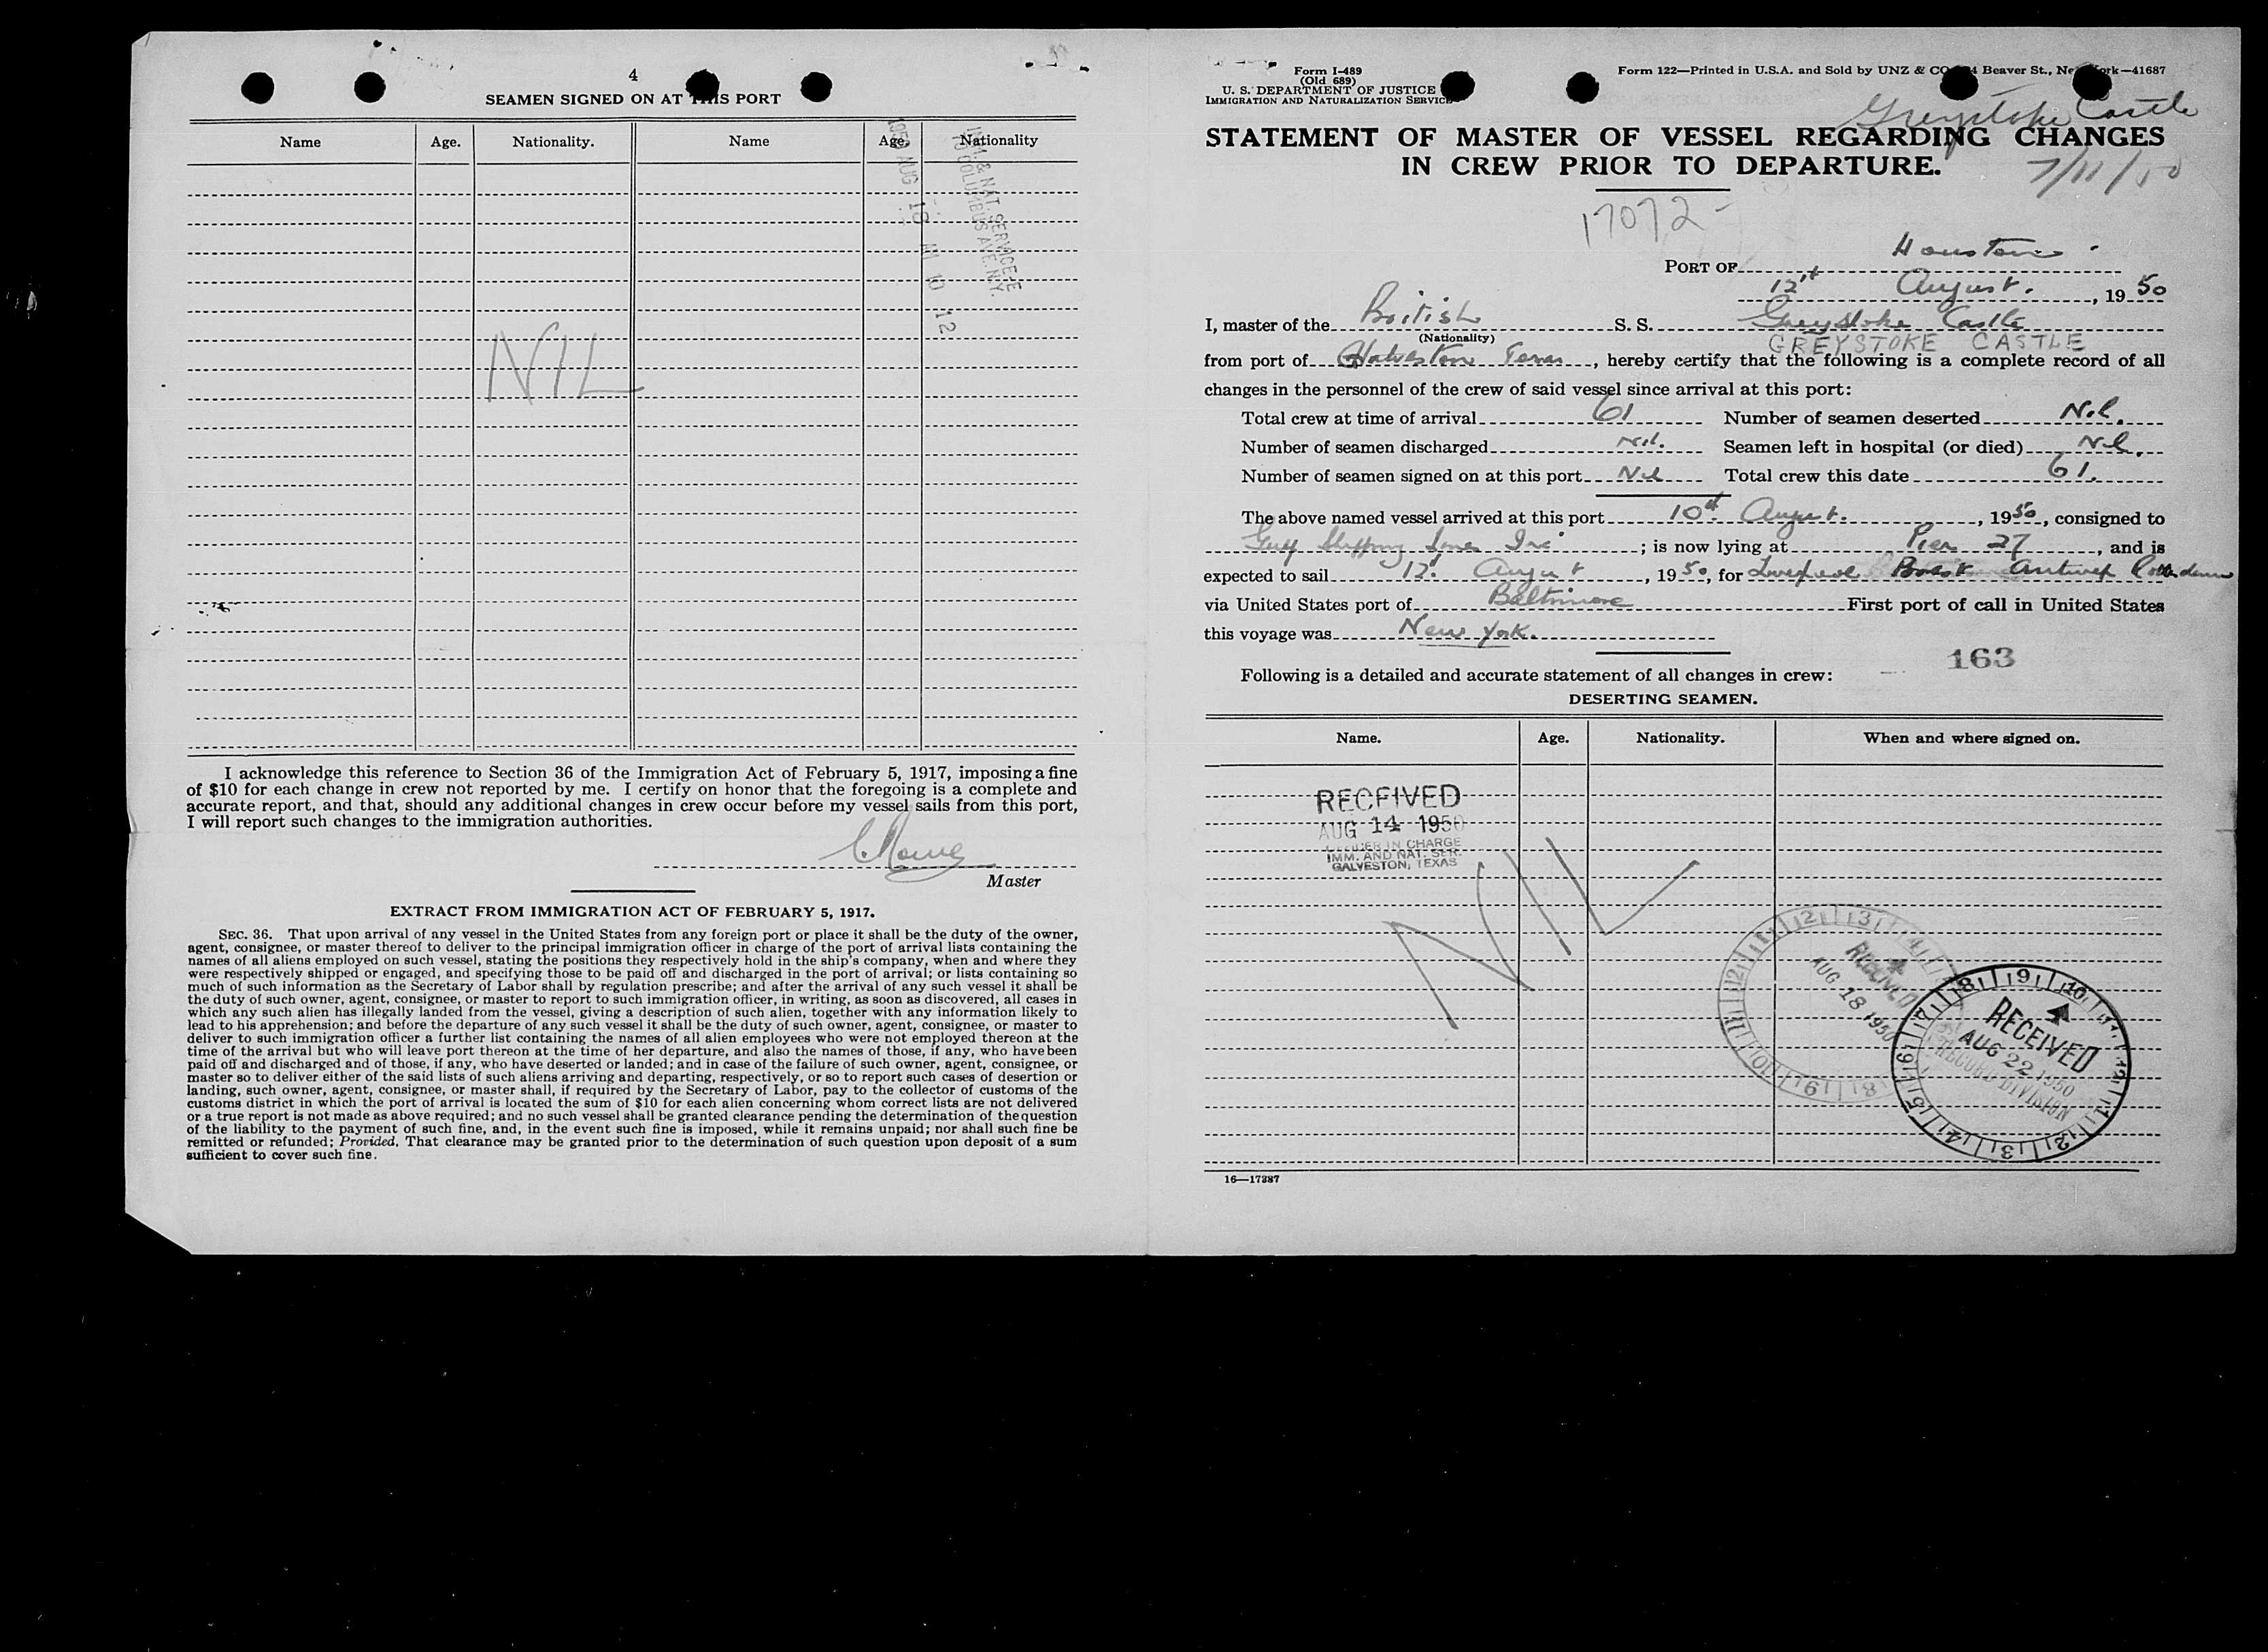 4
SEAMEN SIGNED ON AT THIS PORT
Name Age. Nationality. Name Age. Nationality
IMM. & NAT. SERVICE
70 COLUMBUS AVE. N.Y.
1950 AUG 18 AM 10 12
NIL
I acknowledge this reference to Section 36 of the Immigration Act of February 5, 1917, imposing a fine
of $10 for each change in crew not reported by me. I certify on honor that the foregoing is a complete and
accurate report, and that, should any additional changes in crew occur before my vessel sails from this port,
I will report such changes to the immigration authorities.
Master
EXTRACT FROM IMMIGRATION ACT OF FEBRUARY 5, 1917.
SEC. 36. That upon arrival of any vessel in the United States from any foreign port or place it shall be the duty of the owner,
agent, consignee, or master thereof to deliver to the principal immigration officer in charge of the port of arrival lists containing the
names of all aliens employed on such vessel, stating the positions they respectively hold in the ship's company, when and where they
were respectively shipped or engaged, and specifying those to be paid off and discharged in the port of arrival; or lists containing so
much of such information as the Secretary of Labor shall by regulation prescribe; and after the arrival of any such vessel it shall be
the duty of such owner, agent, consignee, or master to report to such immigration officer, in writing, as soon as discovered, all cases in
which any such alien has illegally landed from the vessel, giving a description of such alien, together with any information likely to
lead to his apprehension; and before the departure of any such vessel it shall be the duty of such owner, agent, consignee, or master to
deliver to such immigration officer a further list containing the names of all alien employees who were not employed thereon at the
time of the arrival but who will leave port thereon at the time of her departure, and also the names of those, if any, who have been
paid off and discharged and of those, if any, who have deserted or landed; and in case of the failure of such owner, agent, consignee, or
master so to deliver either of the said lists of such aliens arriving and departing, respectively, or so to report such cases of desertion or
landing, such owner, agent, consignee, or master shall, if required by the Secretary of Labor, pay to the collector of customs of the
customs district in which the port of arrival is located the sum of $10 for each alien concerning whom correct lists are not delivered
or a true report is not made as above required; and no such vessel shall be granted clearance pending the determination of the question
of the liability to the payment of such fine, and, in the event such fine is imposed, while it remains unpaid; nor shall such fine be
remitted or refunded; Provided, That clearance may be granted prior to the determination of such question upon deposit of a sum
sufficient to cover such fine.
Form I-489
(Old 689)
U. S. DEPARTMENT OF JUSTICE
IMMIGRATION AND NATURALIZATION SERVICE
Form 122—Printed in U.S.A. and Sold by UNZ & CO. 24 Beaver St., New York—41687
Greystoke Castle
STATEMENT OF MASTER OF VESSEL REGARDING CHANGES
IN CREW PRIOR TO DEPARTURE.
7/11/50
17072-
PORT OF Houston
12th August, 1950
I, master of the British S. S. Greystoke Castle
(Nationality) GREYSTOKE CASTLE
from port of Galveston Texas, hereby certify that the following is a complete record of all
changes in the personnel of the crew of said vessel since arrival at this port:
Total crew at time of arrival 61 Number of seamen deserted Nil.
Number of seamen discharged Nil. Seamen left in hospital (or died) Nil.
Number of seamen signed on at this port Nil Total crew this date 61.
The above named vessel arrived at this port 10th August, 1950, consigned to
Gulf Shipping Lines Inc; is now lying at Pier 27, and is
expected to sail 12th August, 1950, for Liverpool Antwerp Rotterdam
via United States port of Baltimore First port of call in United States
this voyage was New York.
163
Following is a detailed and accurate statement of all changes in crew:
DESERTING SEAMEN.
Name. Age. Nationality. When and where signed on.
RECEIVED
AUG 14 1950
OFFICER IN CHARGE
IMM. AND NAT. SER.
GALVESTON, TEXAS
NIL
RECEIVED
AUG 18 1950
RECEIVED
AUG 22 1950
RECORD DIVISION
16—17387